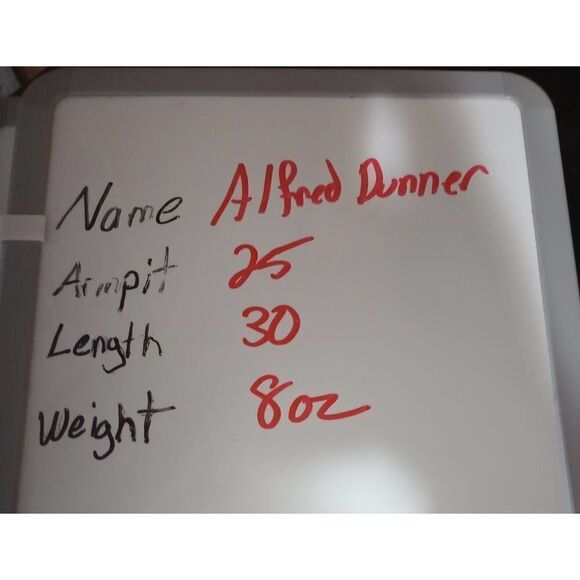 Name Alfred Dunner
Armpit 25
Length 30
Weight 8oz